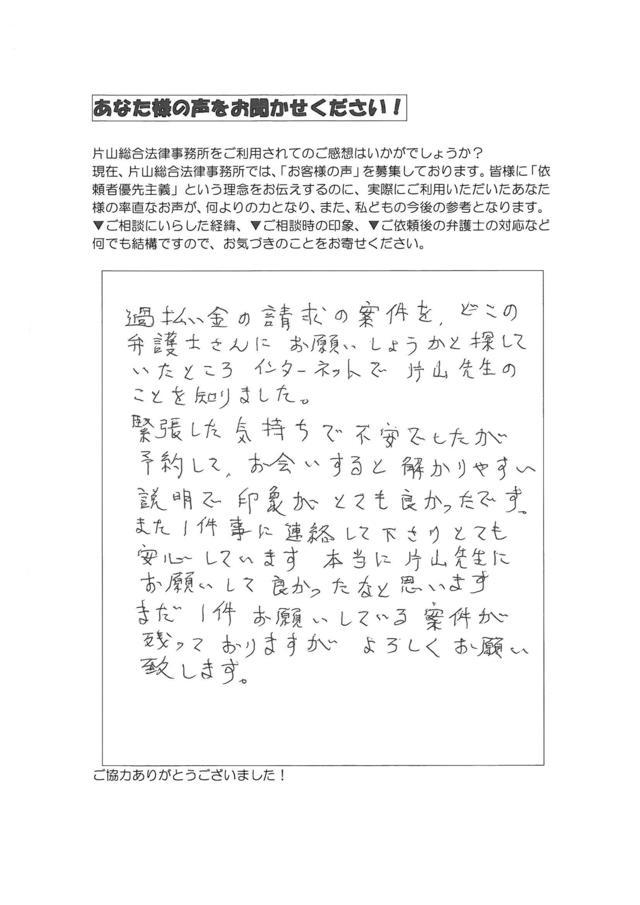 あなた様の声をお聞かせください！
片山総合法律事務所をご利用されてのご感想はいかがでしょうか？
現在、片山総合法律事務所では、「お客様の声」を募集しております。皆様に「依
頼者優先主義」という理念をお伝えするのに、実際にご利用いただいたあなた
様の率直なお声が、何よりの力となり、また、私どもの今後の参考となります。
▼ご相談にいらした経緯、▼ご相談時の印象、▼ご依頼後の弁護士の対応など
何でも結構ですので、お気づきのことをお寄せください。
過払い金の請求の案件を、どこの
弁護士さんに お願いしょうかと探して
いたところ インターネットで 片山先生の
ことを知りました。
緊張した気持ちで不安でしたが
予約して、お会いすると解かりやすい
説明で印象がとても良かったです。
また1件事に連絡して下さりとても
安心しています 本当に片山先生に
お願いして良かったなと思います
まだ1件 お願いしている案件が
残っておりますが よろしくお願い
致します。
ご協力ありがとうございました！